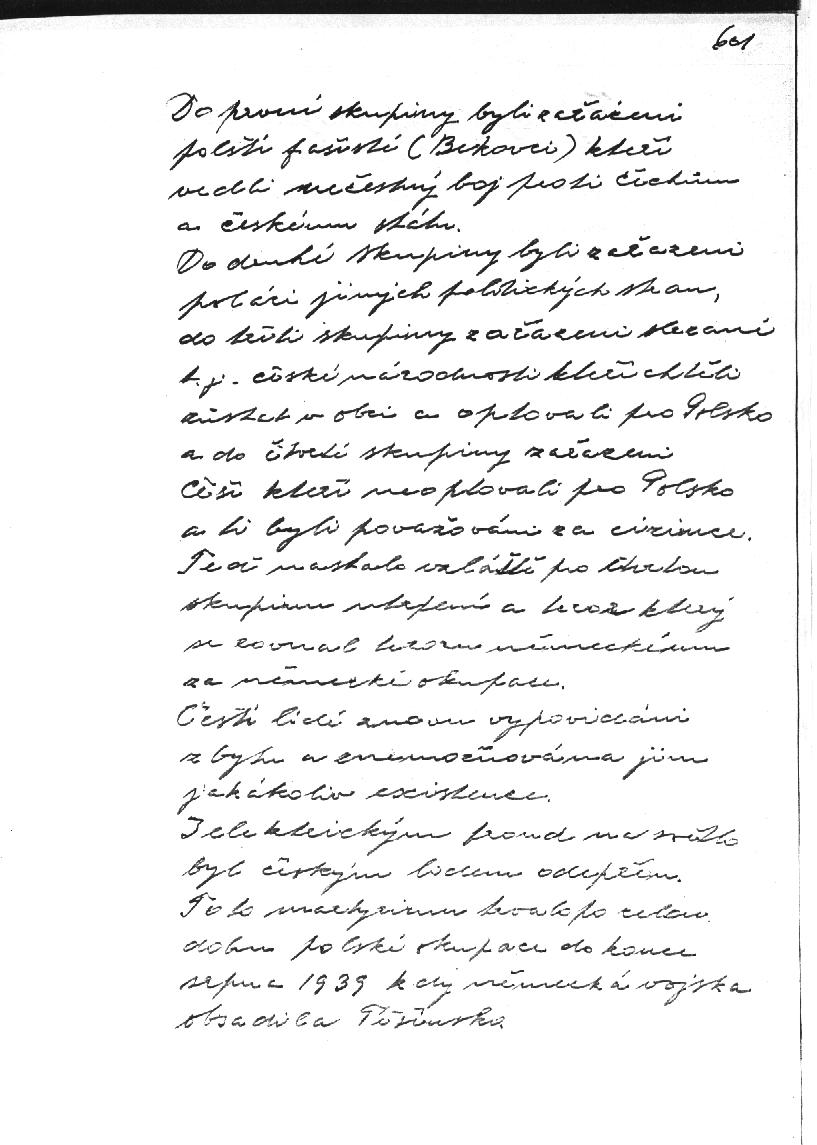 601
Do první skupiny byli zařáceni
polští fašisté (Bekovci) kteří
vedli nečestný boj proti Čechům
a českému státu.
Do druhé skupiny byli zařazeni
poláci jiných politických stran,
do třetí skupiny zařazeni slezané
t.j. české národnosti kteří chtěli
zůstat v obci a optovali pro Polsko
a do čtvrté skupiny zařazeni
Češi kteří neoptovali pro Polsko
a ti byli považováni za cizince.
Teď nastalo vzláště pro čtvrtou
skupinu utrpení a teror který
se rovnal teroru německému
za německé okupace.
Čeští lidé znovu vypovídáni
z bytu a znemožňována jim
jakákoliv existence.
I elektrickým proud na světlo
byl českým lidem odepřen.
Toto martyrium trvalo po celou
dobu polské okupace do konce
srpna 1939 kdy německá vojska
obsadila Těšínsko